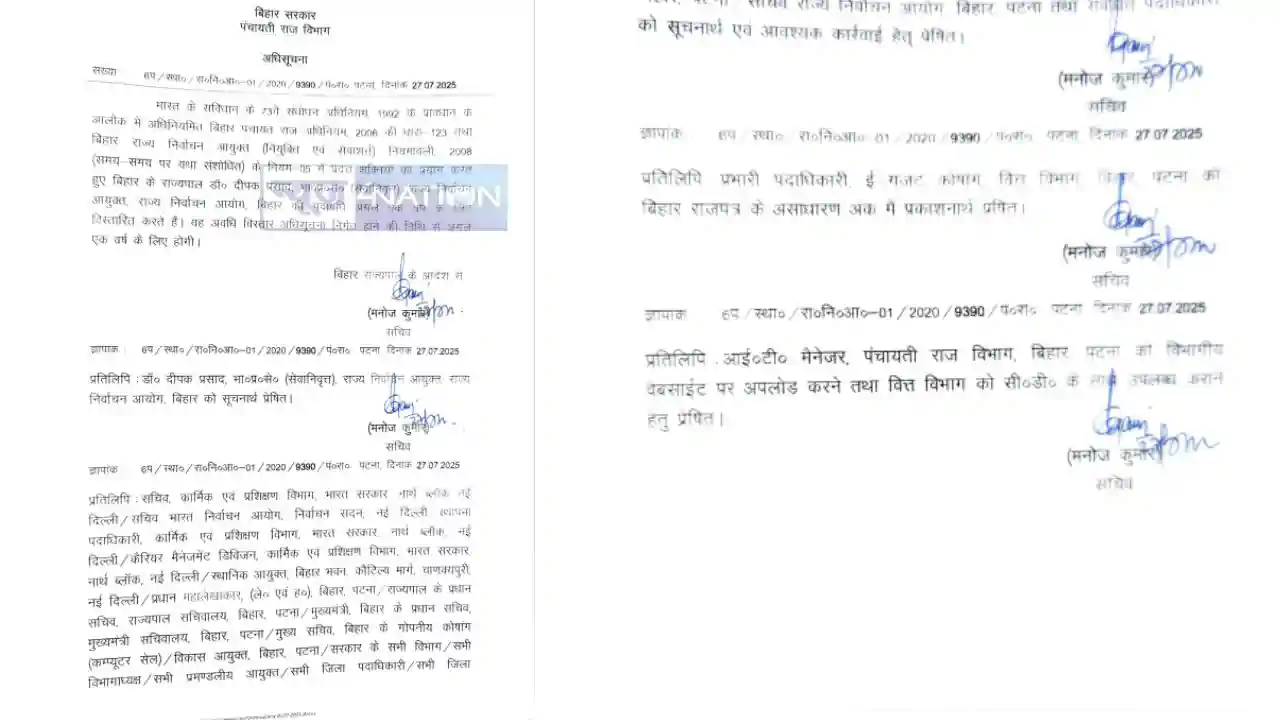 बिहार सरकार
पंचायती राज विभाग
अधिसूचना
संख्या 6प/स्था०/रा०नि०आ०-01/2020/9390/पं०रा० पटना, दिनांक 27.07.2025
भारत के संविधान के 73वें संशोधन अधिनियम, 1992 के प्रावधान के
आलोक में अधिनियमित बिहार पंचायत राज अधिनियम, 2006 की धारा-123 तथा
बिहार राज्य निर्वाचन आयुक्त (नियुक्ति एवं सेवाशर्त) नियमावली, 2008
(समय-समय पर यथा संशोधित) के नियम-05 में प्रदत्त शक्तियों का प्रयोग करते
हुए बिहार के राज्यपाल डॉ० दीपक प्रसाद, भा०प्र०से० (सेवानिवृत्त) राज्य निर्वाचन
आयुक्त, राज्य निर्वाचन आयोग, बिहार की पदावधि अगले एक वर्ष के लिए
विस्तारित करते हैं। यह अवधि विस्तार अधिसूचना निर्गत होने की तिथि से अगले
एक वर्ष के लिए होगी।
NATION
बिहार राज्यपाल के आदेश से
(मनोज कुमार)
सचिव
ज्ञापांक : 6प/स्था०/रा०नि०आ०-01/2020/9390/पं०रा० पटना दिनांक 27.07.2025
प्रतिलिपि : डॉ० दीपक प्रसाद, भा०प्र०से० (सेवानिवृत्त), राज्य निर्वाचन आयुक्त, राज्य
निर्वाचन आयोग, बिहार को सूचनार्थ प्रेषित।
(मनोज कुमार)
सचिव
ज्ञापांक : 6प/स्था०/रा०नि०आ०-01/2020/9390/पं०रा० पटना, दिनांक 27.07.2025
प्रतिलिपि : सचिव, कार्मिक एवं प्रशिक्षण विभाग, भारत सरकार नार्थ ब्लॉक नई
दिल्ली/सचिव भारत निर्वाचन आयोग, निर्वाचन सदन, नई दिल्ली स्थापना
पदाधिकारी, कार्मिक एवं प्रशिक्षण विभाग, भारत सरकार, नार्थ ब्लॉक, नई
दिल्ली/कैरियर मैनेजमेंट डिविजन, कार्मिक एवं प्रशिक्षण विभाग, भारत सरकार,
नार्थ ब्लॉक, नई दिल्ली/स्थानिक आयुक्त, बिहार भवन, कौटिल्य मार्ग, चाणक्यपुरी,
नई दिल्ली/प्रधान महालेखाकार, (ले० एवं ह०), बिहार, पटना/राज्यपाल के प्रधान
सचिव, राज्यपाल सचिवालय, बिहार, पटना/मुख्यमंत्री, बिहार के प्रधान सचिव,
मुख्यमंत्री सचिवालय, बिहार, पटना/मुख्य सचिव, बिहार के गोपनीय कोषांग
(कम्प्यूटर सेल)/विकास आयुक्त, बिहार, पटना/सरकार के सभी विभाग/सभी
विभागाध्यक्ष/सभी प्रमण्डलीय आयुक्त/सभी जिला पदाधिकारी/सभी जिला
सचिव राज्य निर्वाचन आयोग बिहार पटना तथा संबंधित पदाधिकारी
को सूचनार्थ एवं आवश्यक कार्रवाई हेतु प्रेषित।
(मनोज कुमार)
सचिव
ज्ञापांक 6प/स्था०/रा०नि०आ०-01/2020/9390/पं०रा० पटना दिनांक 27.07.2025
प्रतिलिपि प्रभारी पदाधिकारी, ई गजट कोषांग वित्त विभाग, बिहार, पटना को
बिहार राजपत्र के असाधारण अंक में प्रकाशनार्थ प्रेषित।
(मनोज कुमार)
सचिव
ज्ञापांक 6प/स्था०/रा०नि०आ०-01/2020/9390/पं०रा० पटना दिनांक 27.07.2025
प्रतिलिपि : आई०टी० मैनेजर, पंचायती राज विभाग, बिहार पटना को विभागीय
वेबसाईट पर अपलोड करने तथा वित्त विभाग को सी०डी० के साथ उपलब्ध कराने
हेतु प्रेषित।
(मनोज कुमार)
सचिव